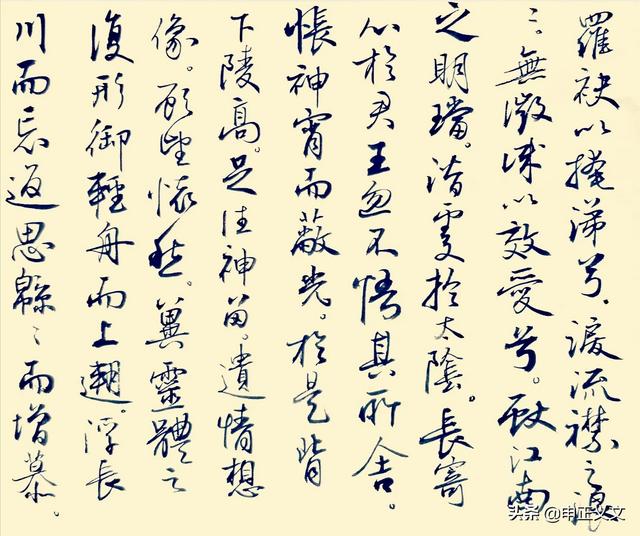 羅袂以掩涕兮，淚流襟之浪
々。無微情以效愛兮。獻江南
之明璫。潛處於太陰。長寄
心於君王忽不悟其所舍。
悵神宵而蔽光。於是背
下陵高。足往神留。遺情想
像。顧望懷愁。冀靈體之
復形御輕舟而上遡。浮長
川而忘返思緜々而增慕。
头条 @申正义文